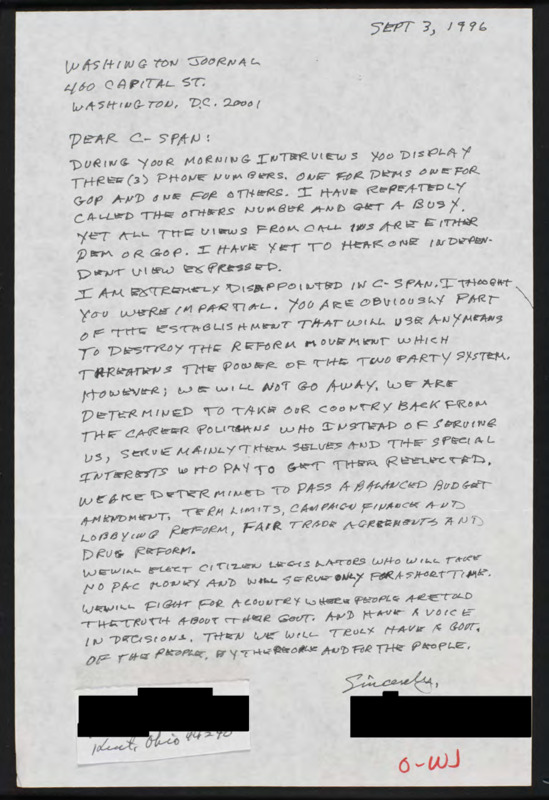 SEPT 3, 1996
WASHINGTON JOURNAL
400 CAPITAL ST.
WASHINGTON, D.C. 20001
DEAR C-SPAN:
DURING YOUR MORNING INTERVIEWS YOU DISPLAY
THREE (3) PHONE NUMBERS. ONE FOR DEMS ONE FOR
GOP AND ONE FOR OTHERS. I HAVE REPEATEDLY
CALLED THE OTHERS NUMBER AND GET A BUSY.
YET ALL THE VIEWS FROM CALL INS ARE EITHER
DEM OR GOP. I HAVE YET TO HEAR ONE INDEPEN-
DENT VIEW EXPRESSED.
I AM EXTREMELY DISAPPOINTED IN C-SPAN. I THOUGHT
YOU WERE IMPARTIAL. YOU ARE OBVIOUSLY PART
OF THE ESTABLISHMENT THAT WILL USE ANY MEANS
TO DESTROY THE REFORM MOVEMENT WHICH
THREATENS THE POWER OF THE TWO PARTY SYSTEM.
HOWEVER; WE WILL NOT GO AWAY. WE ARE
DETERMINED TO TAKE OUR COUNTRY BACK FROM
THE CAREER POLITICIANS WHO INSTEAD OF SERVING
US, SERVE MAINLY THEM SELVES AND THE SPECIAL
INTERESTS WHO PAY TO GET THEM REELECTED.
WE ARE DETERMINED TO PASS A BALANCED BUDGET
AMENDMENT, TERM LIMITS, CAMPAIGN FINANCE AND
LOBBYING REFORM, FAIR TRADE AGREEMENTS AND
DRUG REFORM.
WE WILL ELECT CITIZEN LEGISLATORS WHO WILL TAKE
NO PAC MONEY AND WILL SERVE ONLY FOR A SHORT TIME.
WE WILL FIGHT FOR A COUNTRY WHERE PEOPLE ARE TOLD
THE TRUTH ABOUT THEIR GOVT. AND HAVE A VOICE
IN DECISIONS. THEN WE WILL TRULY HAVE A GOVT.
OF THE PEOPLE, BY THE PEOPLE AND FOR THE PEOPLE.
Sincerely,
Kent, Ohio 44240
O-WJ